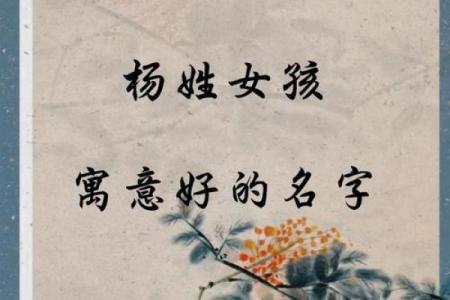 杨姓女孩
寓意好的名字